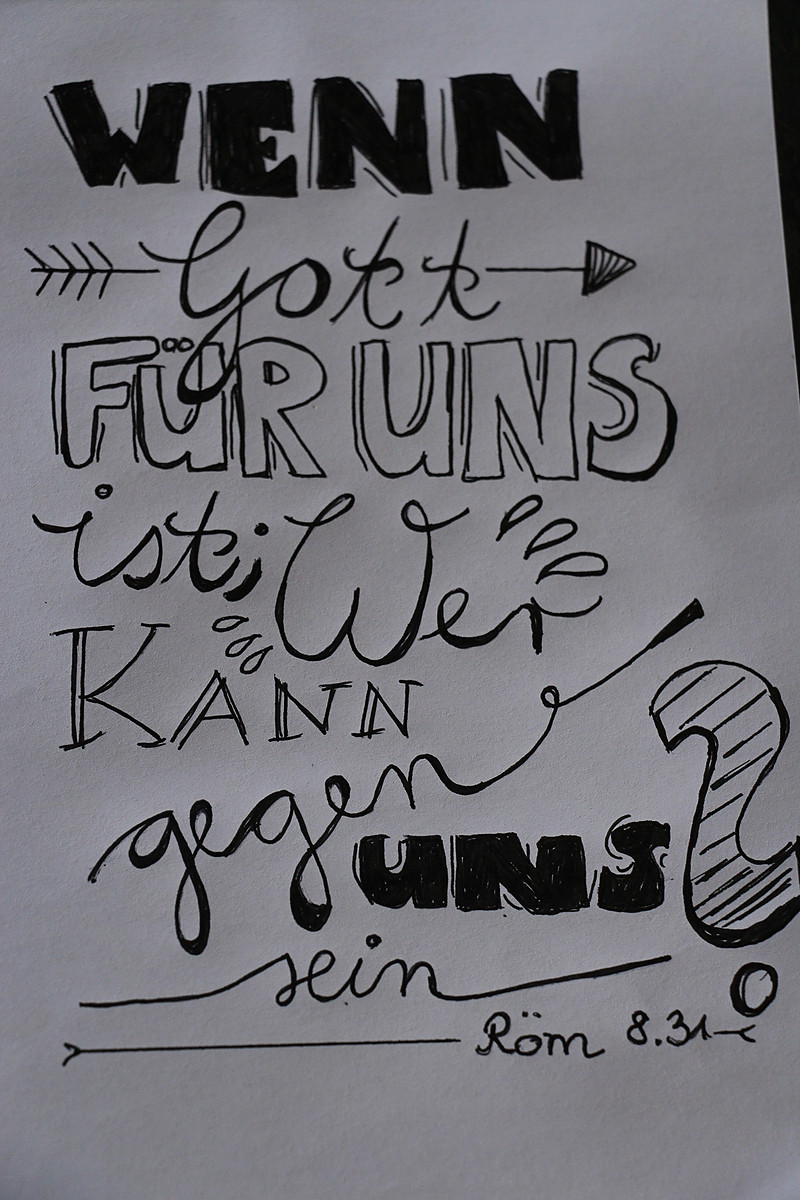 WENN
Gott
FÜR UNS
ist; Wer
KANN
gegen
UNS
sein?
Röm 8.31